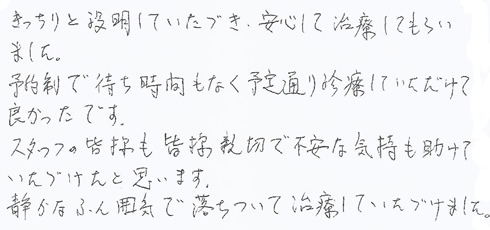 きっちりと説明していただき、安心して治療してもらい
ました。
予約制で待ち時間もなく予定通り診療していただけて
良かったです。
スタッフの皆様も皆様親切で不安な気持も助けて
いただけたと思います。
静かなふん囲気で落ちついて治療していただけました。